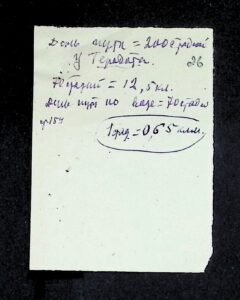 День пути = 200 стадий
У Геродота. 26
70 стадий = 12,5 км.
День пути по воде = 70 стадий
стр 154
1 град = 0,65 клм.